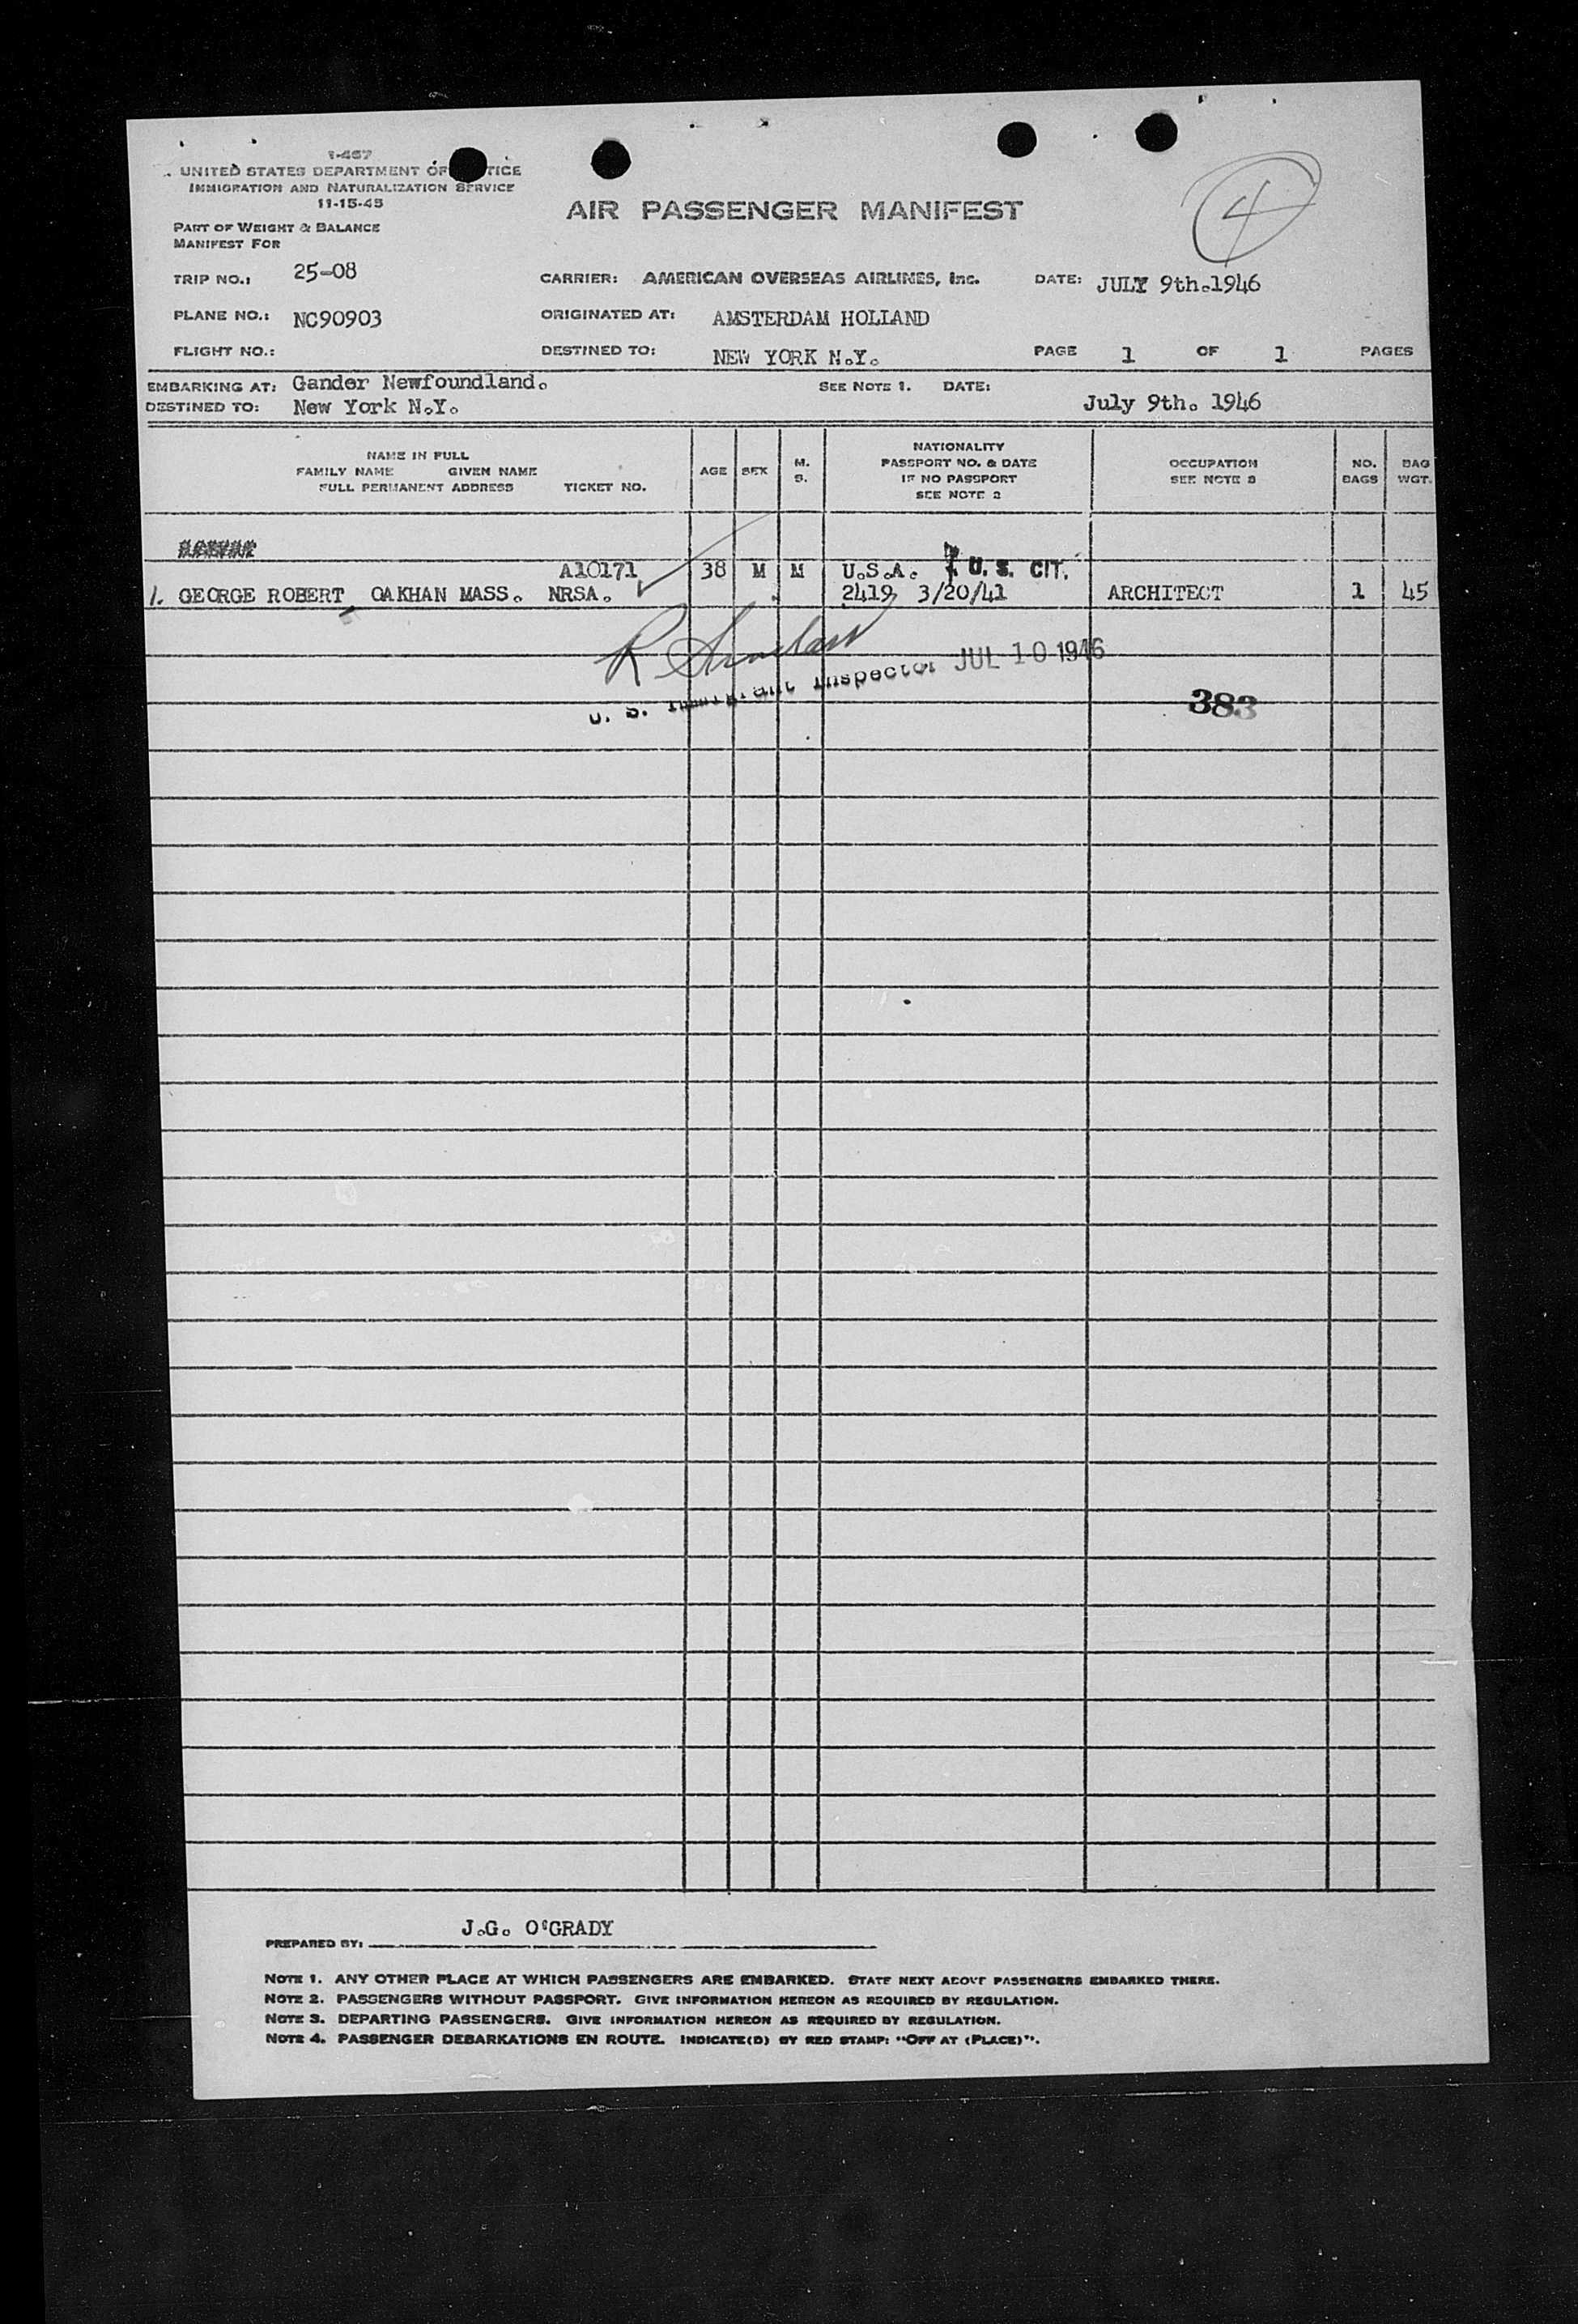 I-467
UNITED STATES DEPARTMENT OF TICE
IMMIGRATION AND NATURALIZATION SERVICE
11-15-45
AIR PASSENGER MANIFEST
4
PART OF WEIGHT & BALANCE
MANIFEST FOR
TRIP NO.: 25-08 CARRIER: AMERICAN OVERSEAS AIRLINES, Inc. DATE: JULY 9th.1946
PLANE NO.: NC90903 ORIGINATED AT: AMSTERDAM HOLLAND
FLIGHT NO.: DESTINED TO: NEW YORK N.Y. PAGE 1 OF 1 PAGES
EMBARKING AT: Gander Newfoundland. SEE NOTE 1. DATE:
DESTINED TO: New York N.Y. July 9th. 1946
NAME IN FULL
FAMILY NAME GIVEN NAME
FULL PERMANENT ADDRESS TICKET NO.
AGE
SEX
M.
S.
NATIONALITY
PASSPORT NO. & DATE
IF NO PASSPORT
SEE NOTE 2
OCCUPATION
SEE NOTE 3
NO.
BAGS
BAG
WGT.
A10171 38 M M U.S.A. U. S. CIT.
1. GEORGE ROBERT, OAKHAN MASS. NRSA. 2419 3/20/41 ARCHITECT 1 45
U. S. Immigrant Inspector JUL 10 1946
383
PREPARED BY: J.G. O'GRADY
NOTE 1. ANY OTHER PLACE AT WHICH PASSENGERS ARE EMBARKED. STATE NEXT ABOVE PASSENGERS EMBARKED THERE.
NOTE 2. PASSENGERS WITHOUT PASSPORT. GIVE INFORMATION HEREON AS REQUIRED BY REGULATION.
NOTE 3. DEPARTING PASSENGERS. GIVE INFORMATION HEREON AS REQUIRED BY REGULATION.
NOTE 4. PASSENGER DEBARKATIONS EN ROUTE. INDICATE(D) BY RED STAMP: "OFF AT (PLACE)".